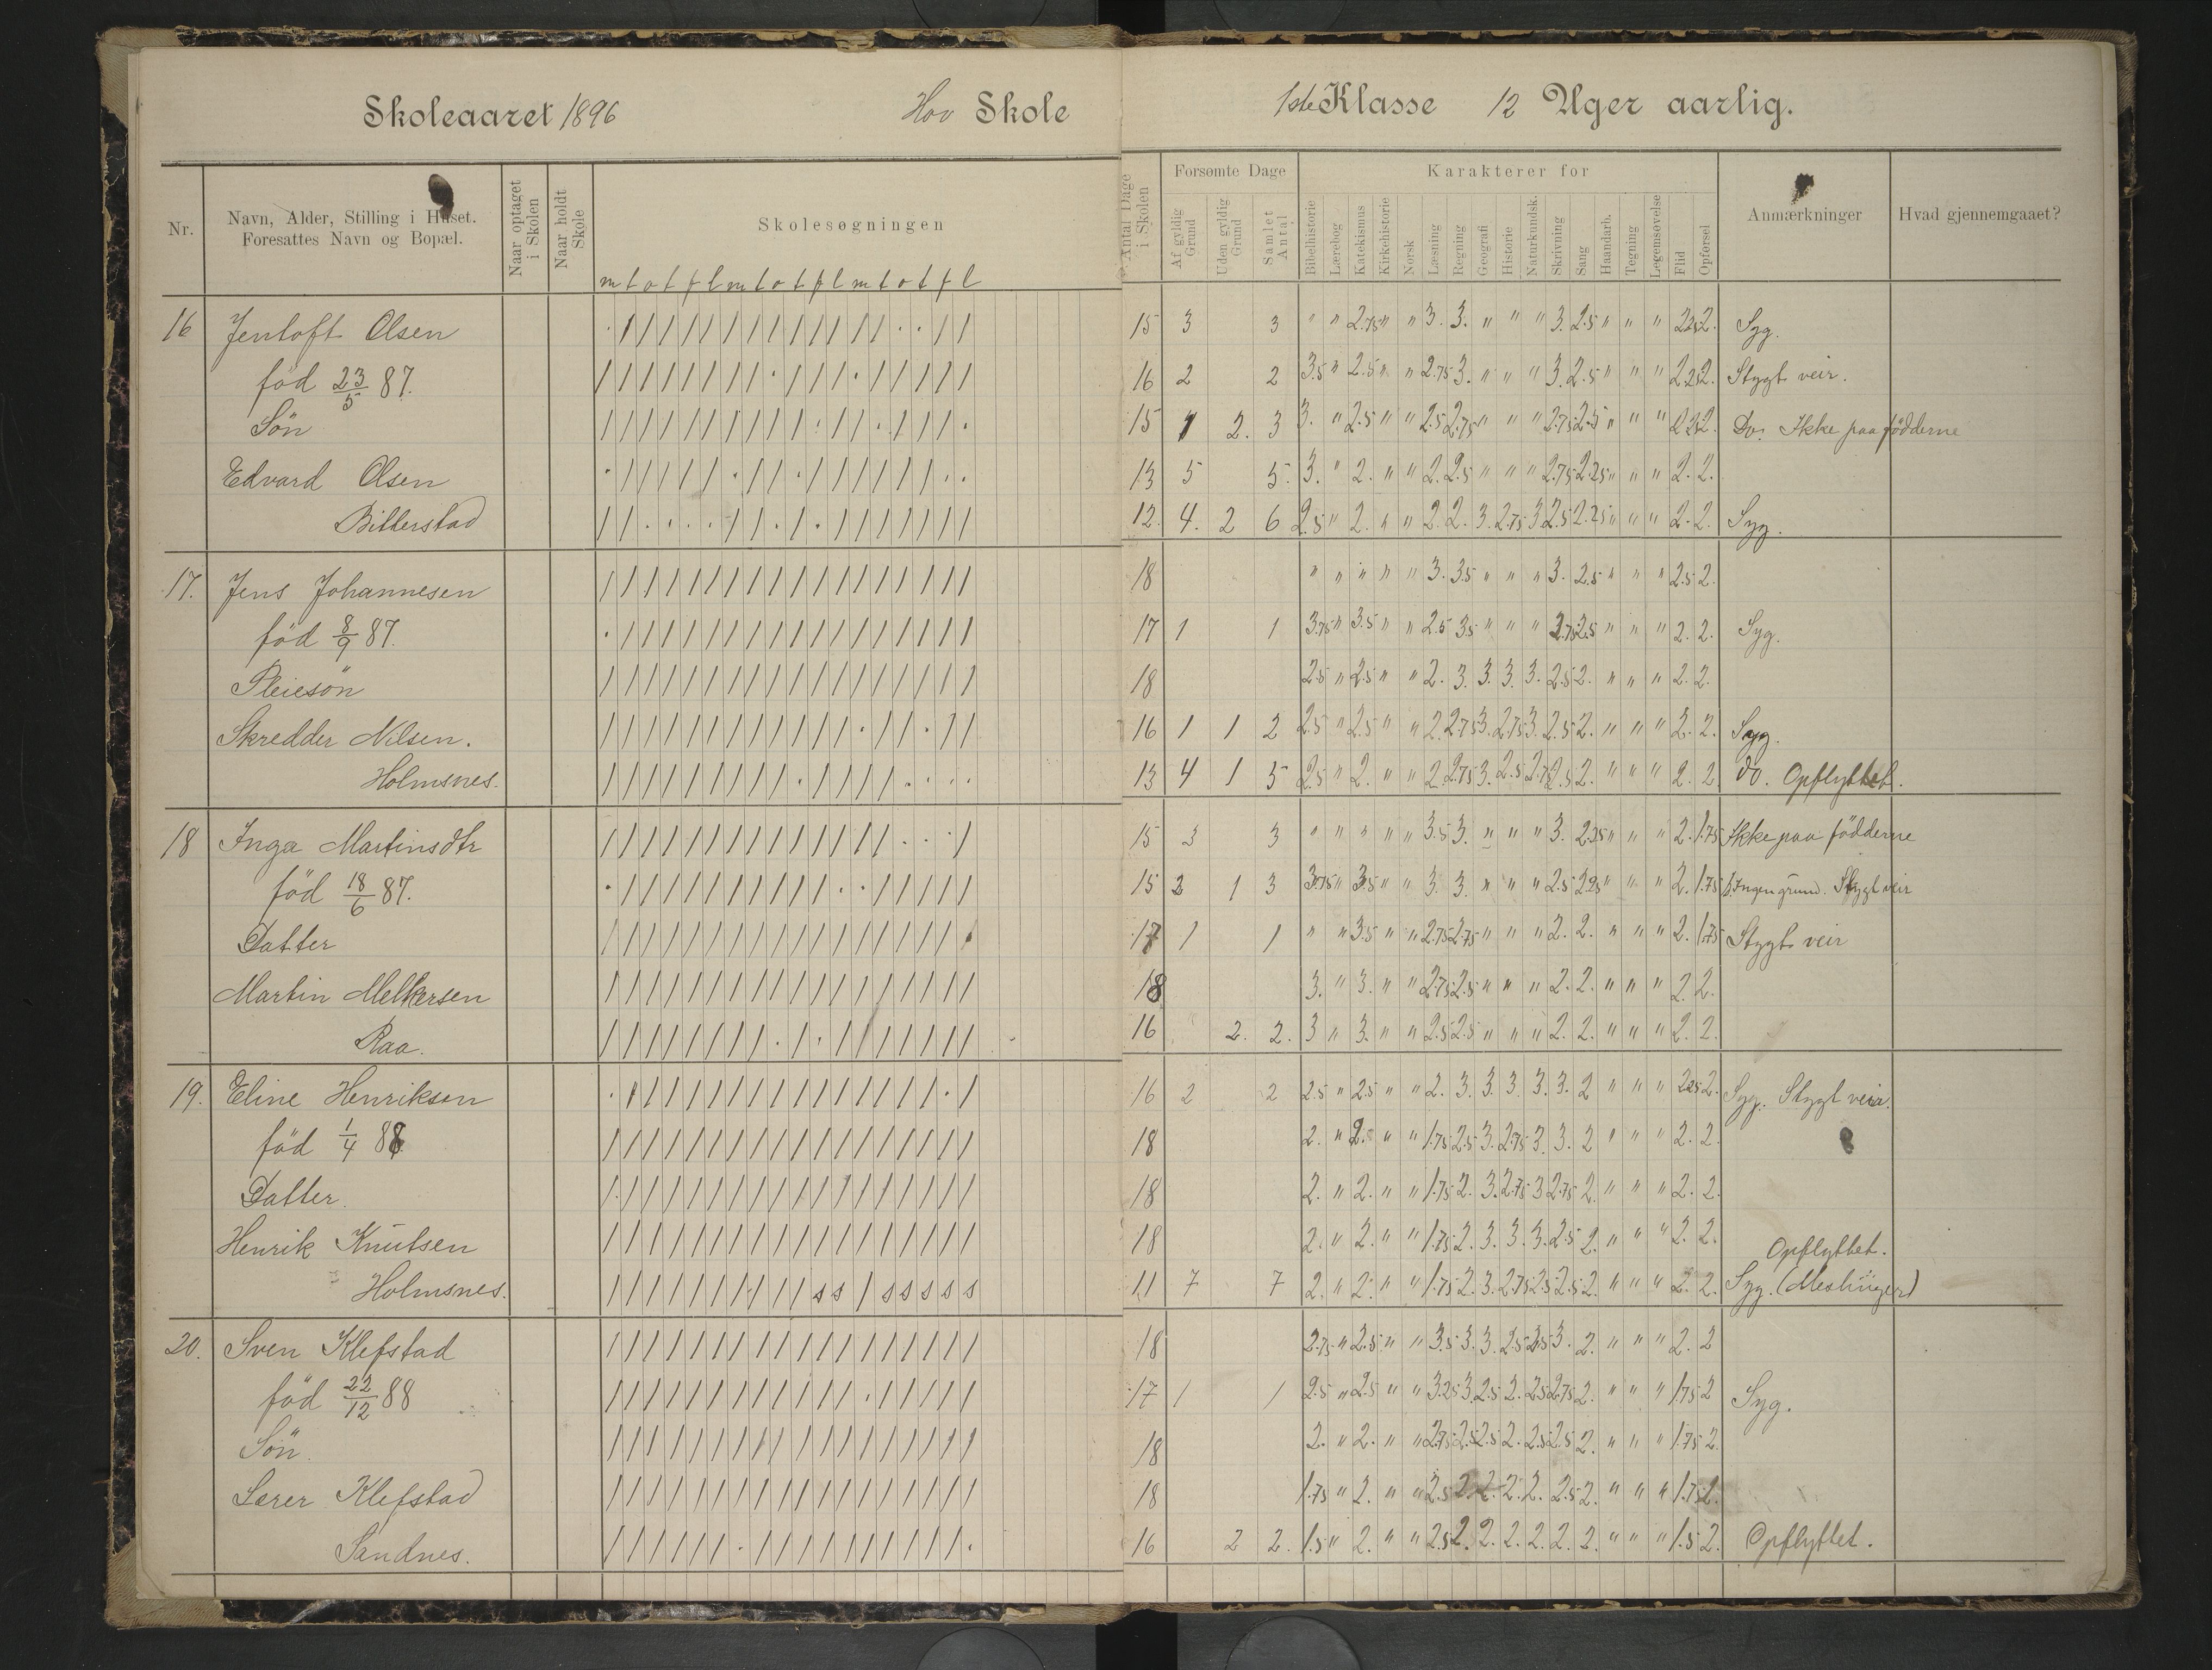 Skoleaaret 1896 Hov Skole
1ste Klasse 12 Uger aarlig.
Nr.
Navn, Alder, Stilling i Huset.
Foresattes Navn og Bopæl.
Naar optaget i Skolen
Naar holdt Skole
Skolesøgningen
m t o t f l m t o t f l m t o t f l
Antal Dage i Skolen
Forsømte Dage
Af gyldig Grund
Uden gyldig Grund
Samlet Antal
Karakterer for
Bibelhistorie
Lærebog
Katekismus
Kirkehistorie
Norsk
Læsning
Regning
Geografi
Historie
Naturkundsk.
Skrivning
Sang
Haandarb.
Tegning
Legemsøvelse
Flid
Opførsel
Anmærkninger
Hvad gjennemgaaet?
16 Jentoft Olsen 15 3 3 " " 2.75 " " 3. 3. " " " 3. 2.5 " " " 2.25 2. Syg.
född 23/5 87. 16 2 2 3.5 " 2.5 " " 2.75 3. " " " 3. 2.5 " " " 2.25 2. Stygt veir.
Sön 15 1 2. 3 3. " 2.5 " " 2.5 2.75 " " " 2.75 2.5 " " " 2.25 2. Do. Ikke paa födderne
Edvard Olsen 13 5 5. 3. " 2. " " 2. 2.5 " " " 2.75 2.25 " " " 2. 2.
Bitterstad 12. 4. 2 6 2.5 " 2. " " 2. 2. 3. 2.75 3 2.5 2.25 " " " 2. 2. Syg.
17. Jens Johannesen 18 " " " " " 3. 3.5 " " " 3. 2.5 " " " 2.5 2.
född 8/9 87. 17 1 1 3.75 " 3.5 " " 2.5 3.5 " " " 2.75 2.5 " " " 2. 2. Syg.
Pleiesön 18 2.5 " 2.5 " " 2. 3. 3. 3. 3. 2.5 2. " " " 2. 2.
Skredder Nilsen. 16 1 1 2 2.5 " 2.5 " " 2. 2.75 3. 2.75 3. 2.5 2. " " " 2. 2. Syg.
Holmsnes. 13 4 1 5 2.5 " 2. " " 2. 2.75 3. 2.5 2.75 2.5 2. " " " 2. 2 do. Opflyttet.
18 Inga Martinsdtr 15 3 3 " " " " " 3.5 3. " " " 3. 2.25 " " " 2. 1.75 Ikke paa födderne
född 18/6 87. 15 2 1 3 3.75 " 3.5 " " 3. 3. " " " 2.5 2.25 " " " 2. 1.75 Ingen grund. Stygt veir
Datter 17 1 1 " " 3.5 " " 2.75 2.75 " " " 2. 2. " " " 2. 1.75 Stygt veir
Martin Melkersen 18 3. " 3. " " 2.75 2.5 " " " 2. 2. " " " 2. 2.
Raa. 16 2. 2. 3 " 3. " " 2.5 2.5 " " " 2. 2. " " " 2. 2.
19. Eline Henriksen 16 2 2 2.5 " 2.5 " " 2. 3. 3. 3. 3. 3. 2 " " " 2.25 2. Syg. Stygt veir.
född 1/4 86 18 2. " 2. " " 1.75 2.5 3. 2.75 3. 3. 2 " " " 2. 2.
Datter. 18 2. " 2. " " 1.75 2. 3. 2.75 3 2.75 2. " " " 2. 2.
Henrik Knutsen 18 2. " 2. " " 1.75 2. 3. 3. 3. 2.5 2. " " " 2. 2. Opflyttet.
Holmsnes. s s s s s s s 11 7 7 2. " 2. " " 1.75 2. 3. 2.75 2.5 2.5 2. " " " 2. 2. Syg. (Meslinger)
20. Sven Klefstad 18 2.75 " 2.5 " " 3.5 3. 3. 2.5 2.5 3. 2. " " " 2. 2
född 22/12 88 17 1 1 2.5 " 2.5 " " 3.25 3. 2.5 2. 2.5 2.75 2. " " " 1.75 2 Syg.
Sön. 18 2. " 2. " " 2.75 2.5 2.5 2. 2.5 2.5 2. " " " 1.75 2.
Lærer Klefstad 18 1.75 " 2. " " 2.5 2. 2. 2. 2. 2.5 2. " " " 1.75 2.
Sandnes. 16 2 2. 1.5 " 2. " " 2.5 2. 2. 2. 2. 2. 2. " " " 1.5 2. Opflyttet.